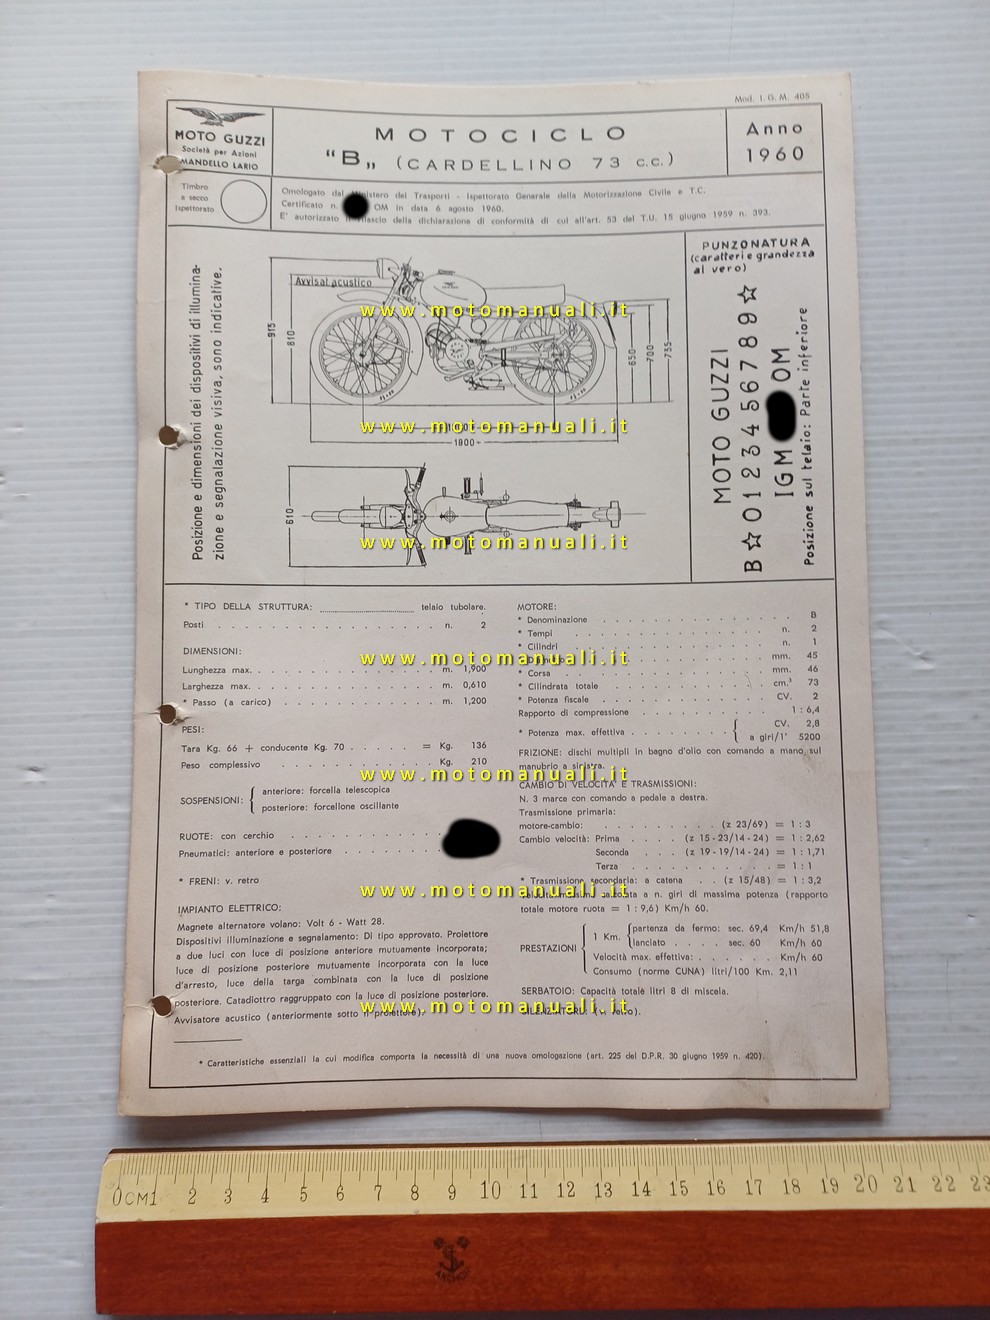 Mod. I. G. M. 405
MOTO GUZZI
Società per Azioni
MANDELLO LARIO
MOTOCICLO
"B„ (CARDELLINO 73 c.c.)
Anno
1960
Timbro
a secco
Ispettorato
Omologato dal Ministero dei Trasporti - Ispettorato Generale della Motorizzazione Civile e T.C.
Certificato n. OM in data 6 agosto 1960.
E' autorizzato il rilascio della dichiarazione di conformità di cui all'art. 53 del T.U. 15 giugno 1959 n. 393.
Posizione e dimensioni dei dispositivi di illumina-
zione e segnalazione visiva, sono indicative.
Avvisat. acustico
915
810
650
700
755
1800
610
PUNZONATURA
(caratteri e grandezza
al vero)
MOTO GUZZI
B☆0123456789☆
IGM OM
Posizione sul telaio: Parte inferiore
www.motomanuali.it
www.motomanuali.it
www.motomanuali.it
* TIPO DELLA STRUTTURA: telaio tubolare.
Posti . . . n. 2
DIMENSIONI:
Lunghezza max. . . . m. 1,900
Larghezza max. . . . m. 0,610
* Passo (a carico) . . . m. 1,200
PESI:
Tara Kg. 66 + conducente Kg. 70 . . . = Kg. 136
Peso complessivo . . . Kg. 210
SOSPENSIONI: { anteriore: forcella telescopica
posteriore: forcellone oscillante
RUOTE: con cerchio . . .
Pneumatici: anteriore e posteriore . . .
* FRENI: v. retro
IMPIANTO ELETTRICO:
Magnete alternatore volano: Volt 6 - Watt 28.
Dispositivi illuminazione e segnalamento: Di tipo approvato. Proiettore
a due luci con luce di posizione anteriore mutuamente incorporata;
luce di posizione posteriore mutuamente incorporata con la luce
d'arresto, luce della targa combinata con la luce di posizione
posteriore. Catadiottro raggruppato con la luce di posizione posteriore.
Avvisatore acustico (anteriormente sotto il proiettore).
MOTORE:
* Denominazione . . . B
* Tempi . . . n. 2
* Cilindri . . . n. 1
www.motomanuali.it mm. 45
* Corsa . . . mm. 46
* Cilindrata totale . . . cm.³ 73
* Potenza fiscale . . . CV. 2
Rapporto di compressione . . . 1 : 6,4
* Potenza max. effettiva . . . { CV. 2,8
a giri/1' 5200
FRIZIONE: dischi multipli in bagno d'olio con comando a mano, sul
manubrio a sinistra.
www.motomanuali.it
CAMBIO DI VELOCITA' E TRASMISSIONI:
N. 3 marce con comando a pedale a destra.
Trasmissione primaria:
motore-cambio: . . . (z 23/69) = 1 : 3
Cambio velocità: Prima . . . (z 15 - 23/14 - 24) = 1 : 2,62
Seconda . . . (z 19 - 19/14 - 24) = 1 : 1,71
Terza . . . = 1 : 1
* Trasmissione secondaria: a catena . . . (z 15/48) = 1 : 3,2
www.motomanuali.it
Velocità massima calcolata a n. giri di massima potenza (rapporto
totale motore ruota = 1 : 9,6) Km/h 60.
PRESTAZIONI { 1 Km. { partenza da fermo: sec. 69,4 Km/h 51,8
lanciato . . . sec. 60 Km/h 60
Velocità max. effettiva: . . . Km/h 60
Consumo (norme CUNA) litri/100 Km. 2,11
SERBATOIO: Capacità totale litri 8 di miscela.
www.motomanuali.it
* Caratteristiche essenziali la cui modifica comporta la necessità di una nuova omologazione (art. 225 del D.P.R. 30 giugno 1959 n. 420).
0CM1 2 3 4 5 6 7 8 9 10 11 12 13 14 15 16 17 18 19 20 21 22 23
ANCHOR